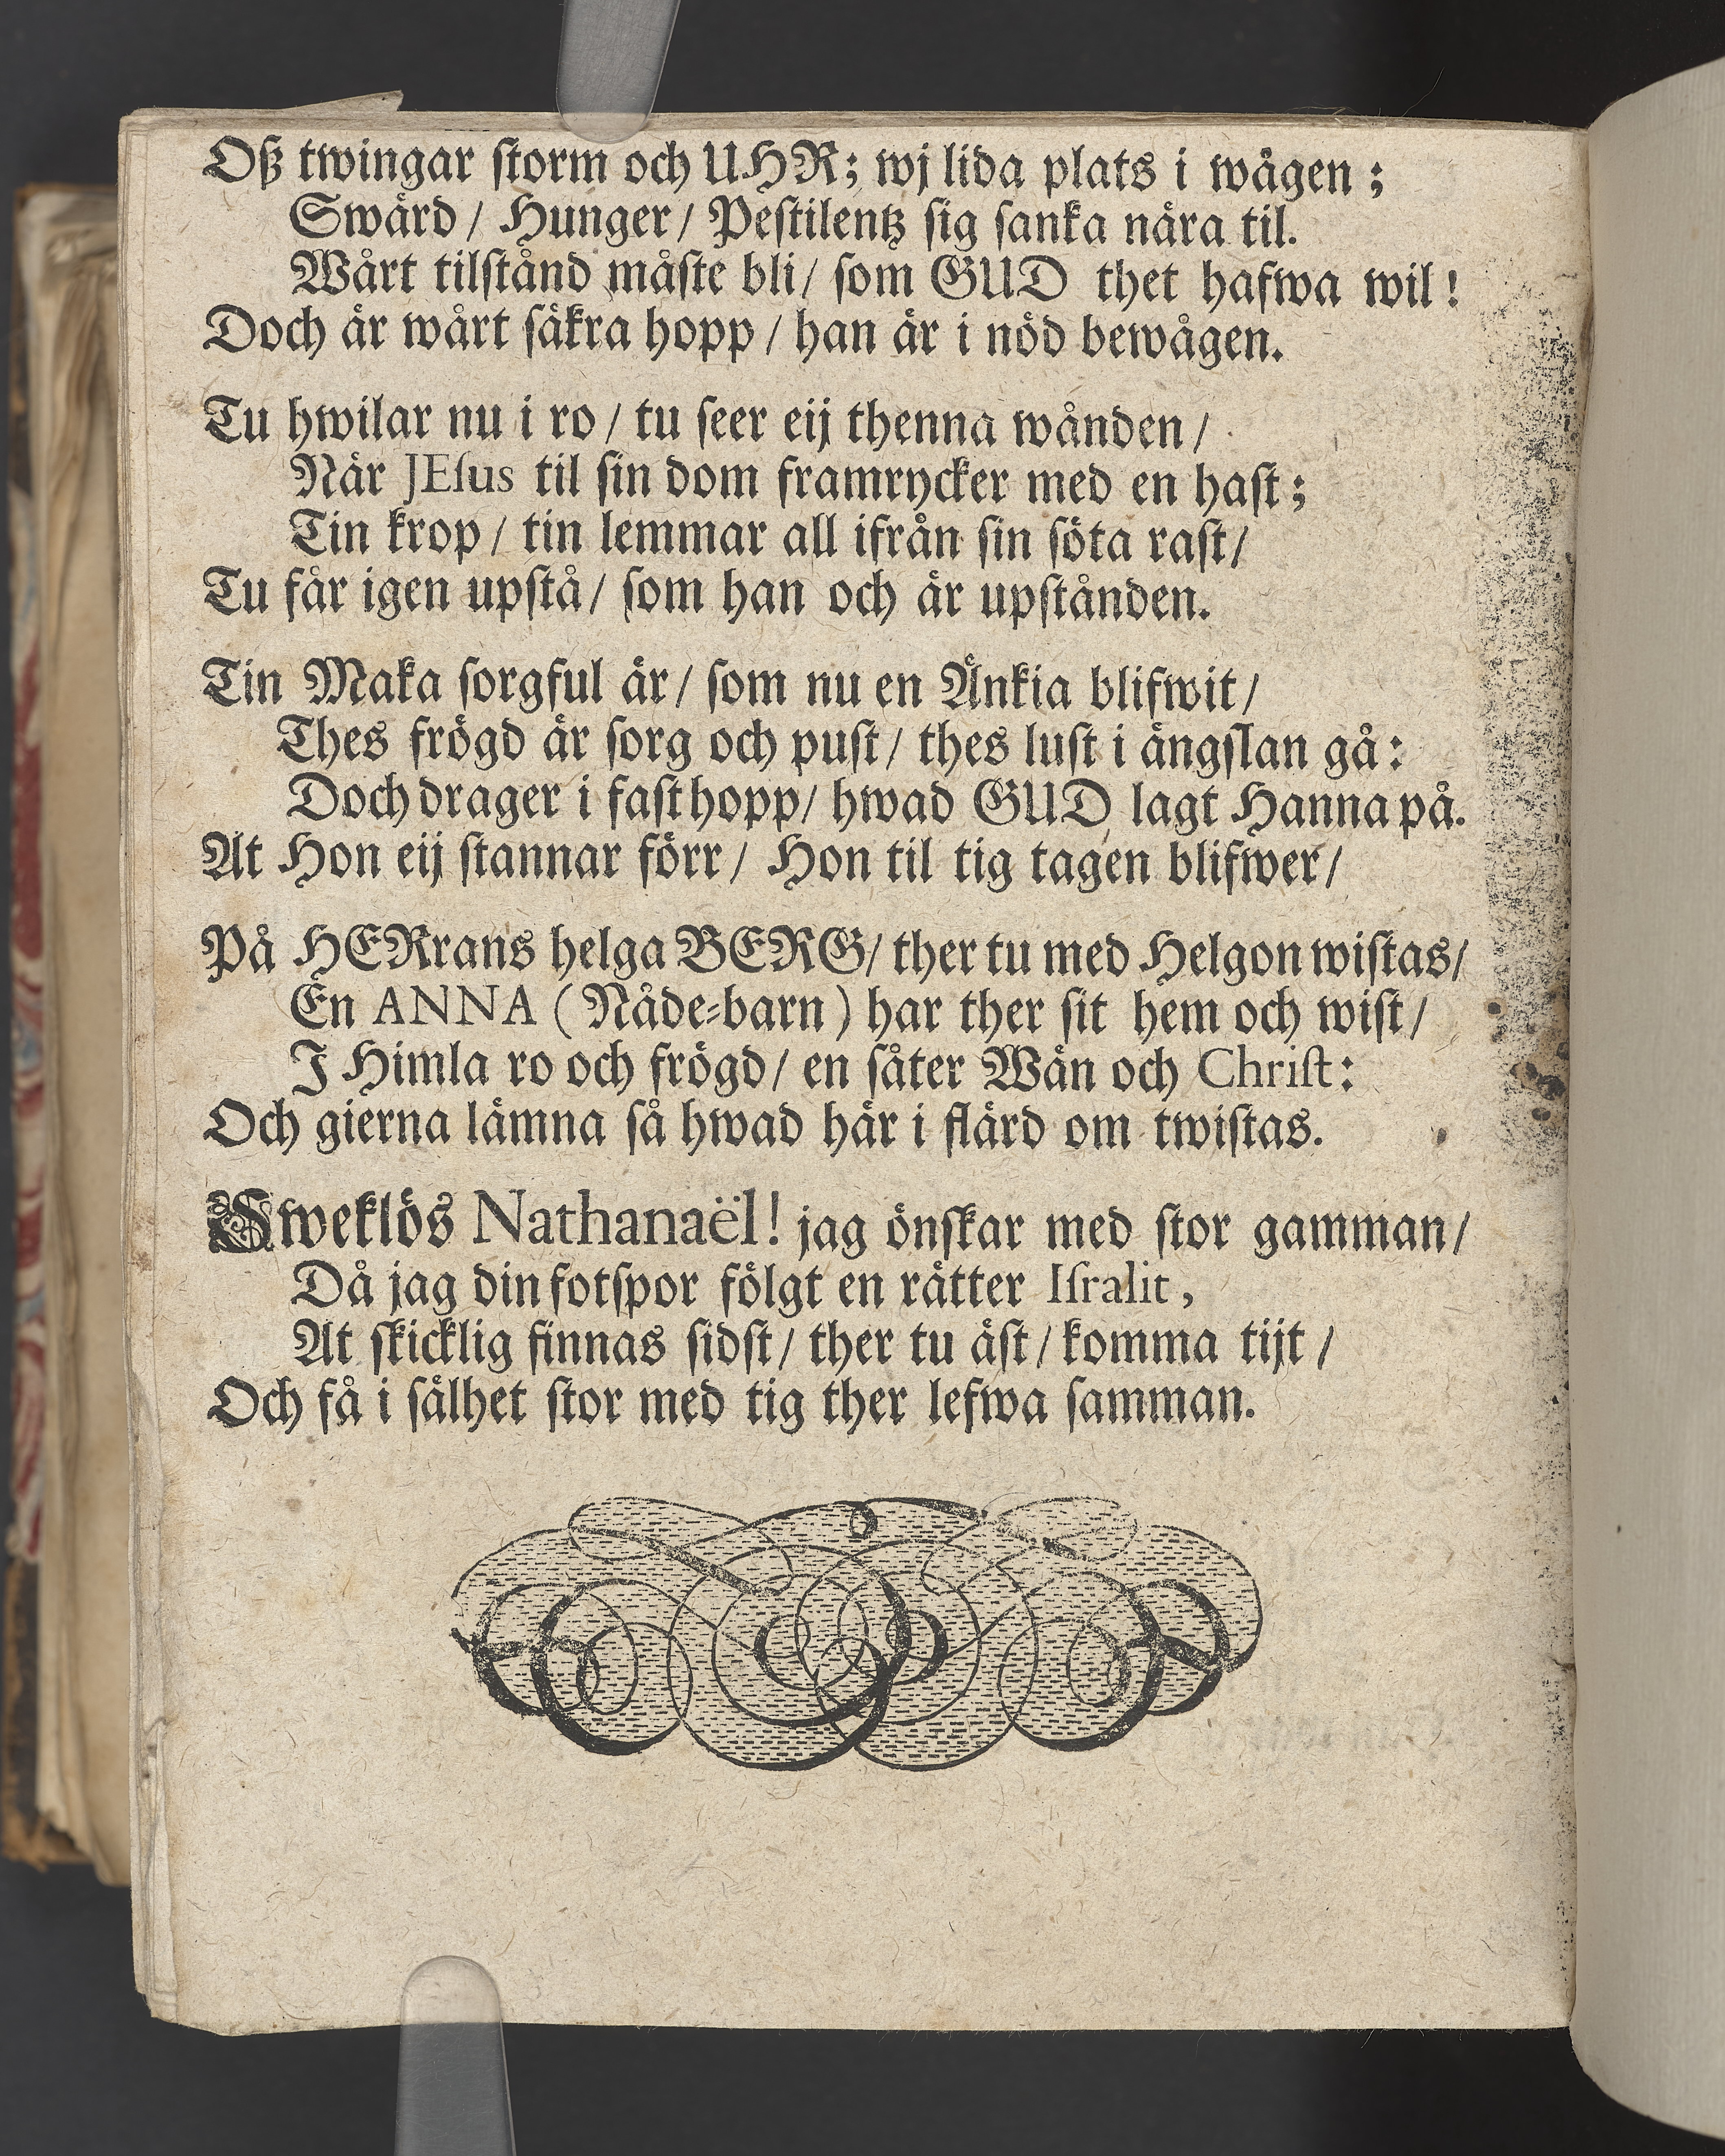 Oß twingar storm och UHR; wj lida plats i wågen;
Swärd / Hunger / Pestilentz sig sanka nära til.
Wårt tilstånd måste bli / som GUD thet hafwa wil!
Doch är wårt säkra hopp / han är i nöd bewågen.
Tu hwilar nu i ro / tu seer eij thenna wånden /
När JEsus til sin dom framrycker med en hast;
Tin krop / tin lemmar all ifrån sin söta rast /
Tu får igen upstå / som han och är upstånden.
Tin Maka sorgful är / som nu en Änkia blifwit /
Thes frögd är sorg och pust / thes lust i ängslan gå:
Doch drager i fast hopp / hwad GUD lagt Hanna på.
At Hon eij stannar förr / Hon til tig tagen blifwer /
På HERrans helga BERG / ther tu med Helgon wistas /
En ANNA (Nåde-barn) har ther sit hem och wist /
J Himla ro och frögd / en såter Wän och Christ:
Och gierna lämna så hwad här i flärd om twistas.
Sweklös Nathanaël! jag önskar med stor gamman /
Då jag din fotspor fölgt en rätter Isralit,
At skicklig finnas sidst / ther tu äst / komma tijt /
Och få i sälhet stor med tig ther lefwa samman.